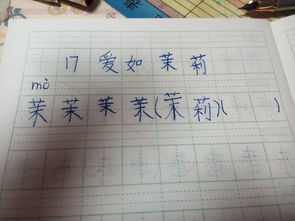 17 爱如茉莉
mò
茉茉茉茉(茉莉)( )